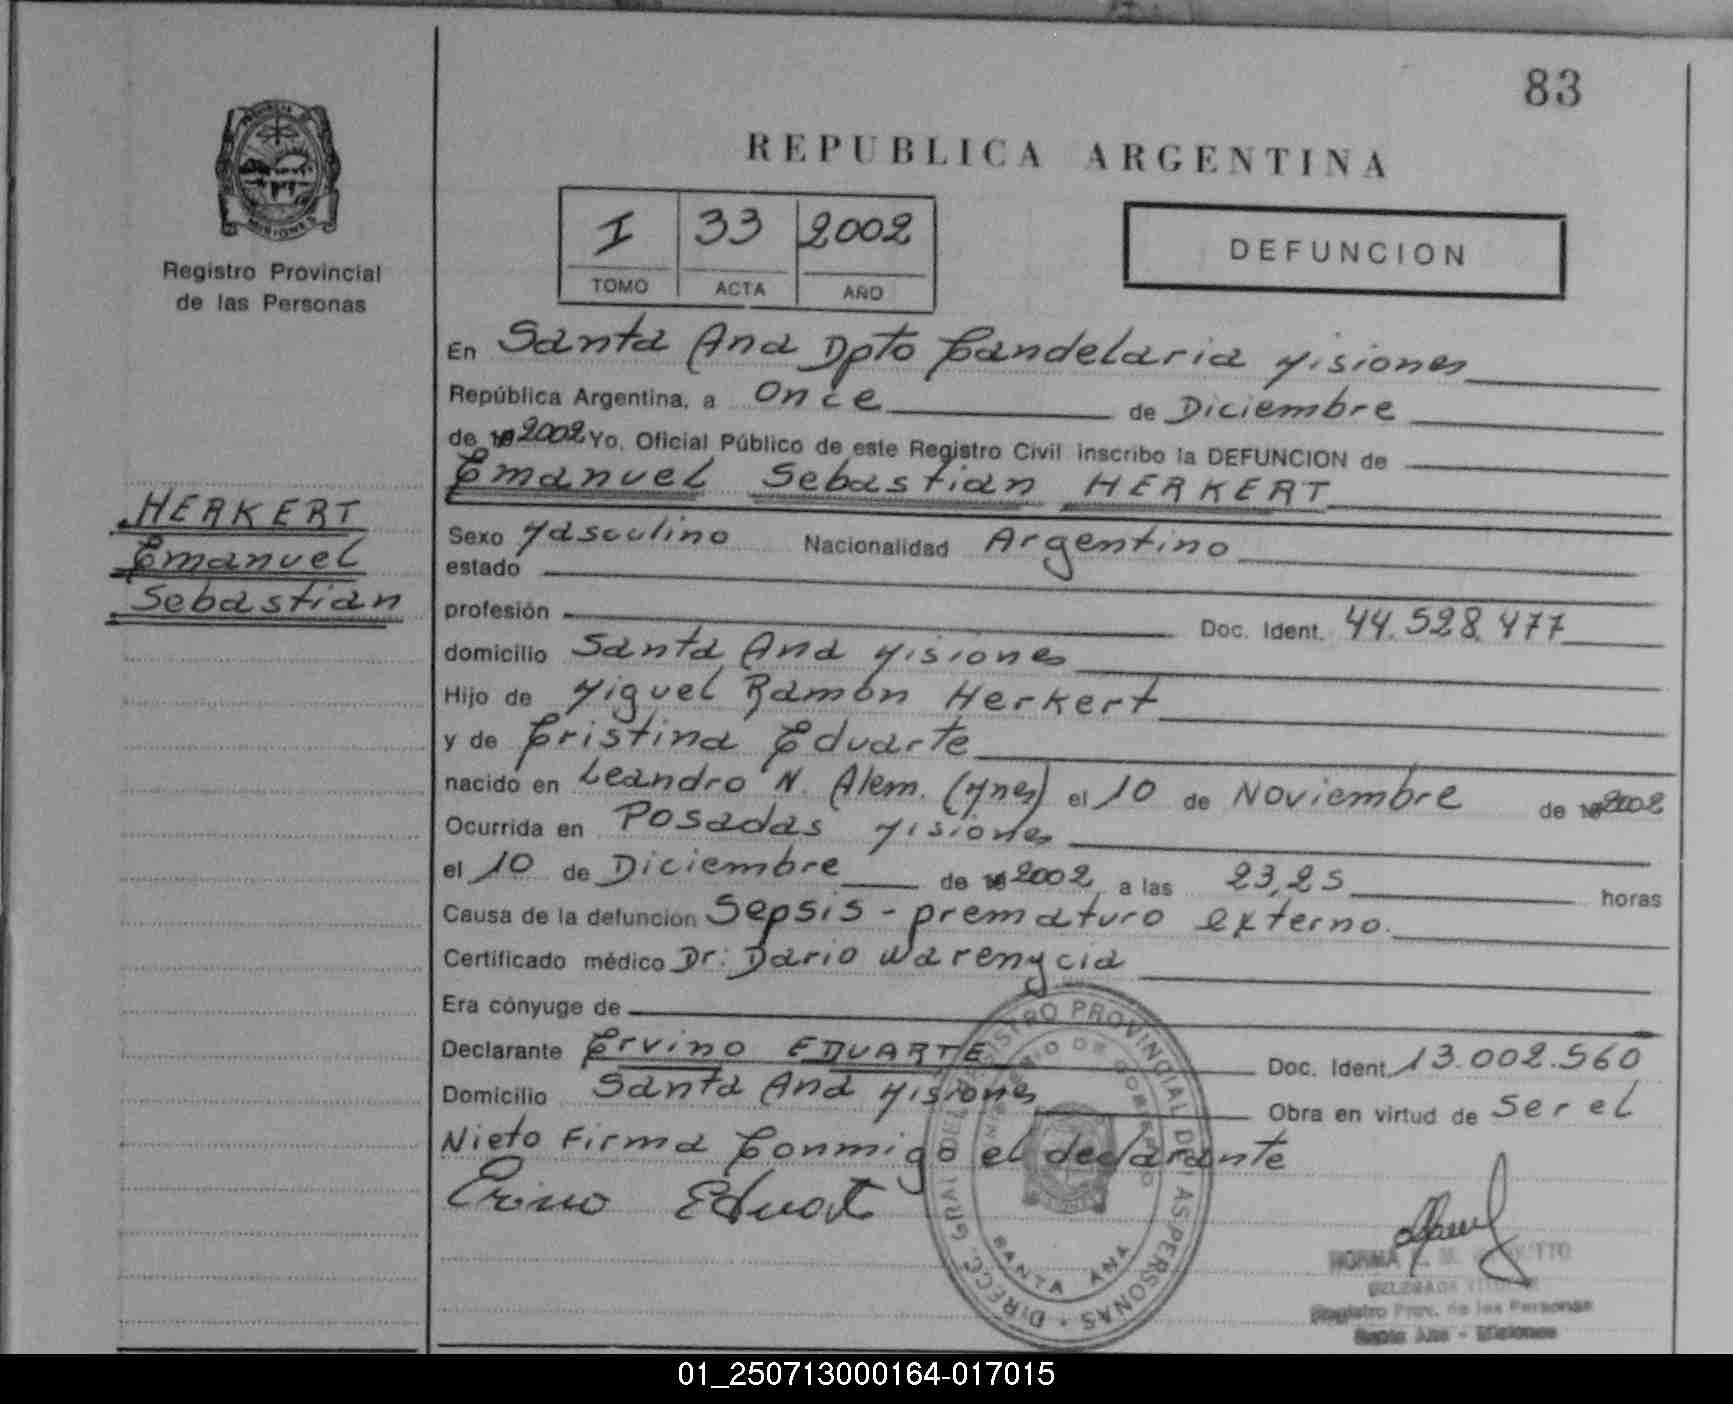 83
REPUBLICA ARGENTINA
MISIONES
Registro Provincial
de las Personas
I 33 2002
TOMO ACTA AÑO
DEFUNCION
HERKERT
Emanuel
Sebastian
En Santa Ana Dpto Candelaria Misiones
República Argentina, a Once de Diciembre
de 19 2002 Yo, Oficial Público de este Registro Civil inscribo la DEFUNCION de
Emanuel Sebastian HERKERT
Sexo Masculino Nacionalidad Argentino
estado
profesión Doc. Ident. 44.528.477
domicilio Santa Ana Misiones
Hijo de Miguel Ramón Herkert
y de Cristina Eduarte
nacido en Leandro N. Alem. (Mnes) el 10 de Noviembre de 19 2002
Ocurrida en Posadas Misiones
el 10 de Diciembre de 19 2002 a las 23,25 horas
Causa de la defunción Sepsis - prematuro externo.
Certificado médico Dr: Dario Warenycia
Era cónyuge de
Declarante Ervino EDUARTE Doc. Ident. 13.002.560
Domicilio Santa Ana Misiones Obra en virtud de Ser el
Nieto Firma Conmigo el declarante
Ervino Eduart
DIRECC. GRAL DEL REGISTRO PROVINCIAL DE LAS PERSONAS
MINISTERIO DE GOBIERNO
SANTA ANA
NORMA
Registro Prov. de las Personas
Santa Ana - Misiones
01_250713000164-017015